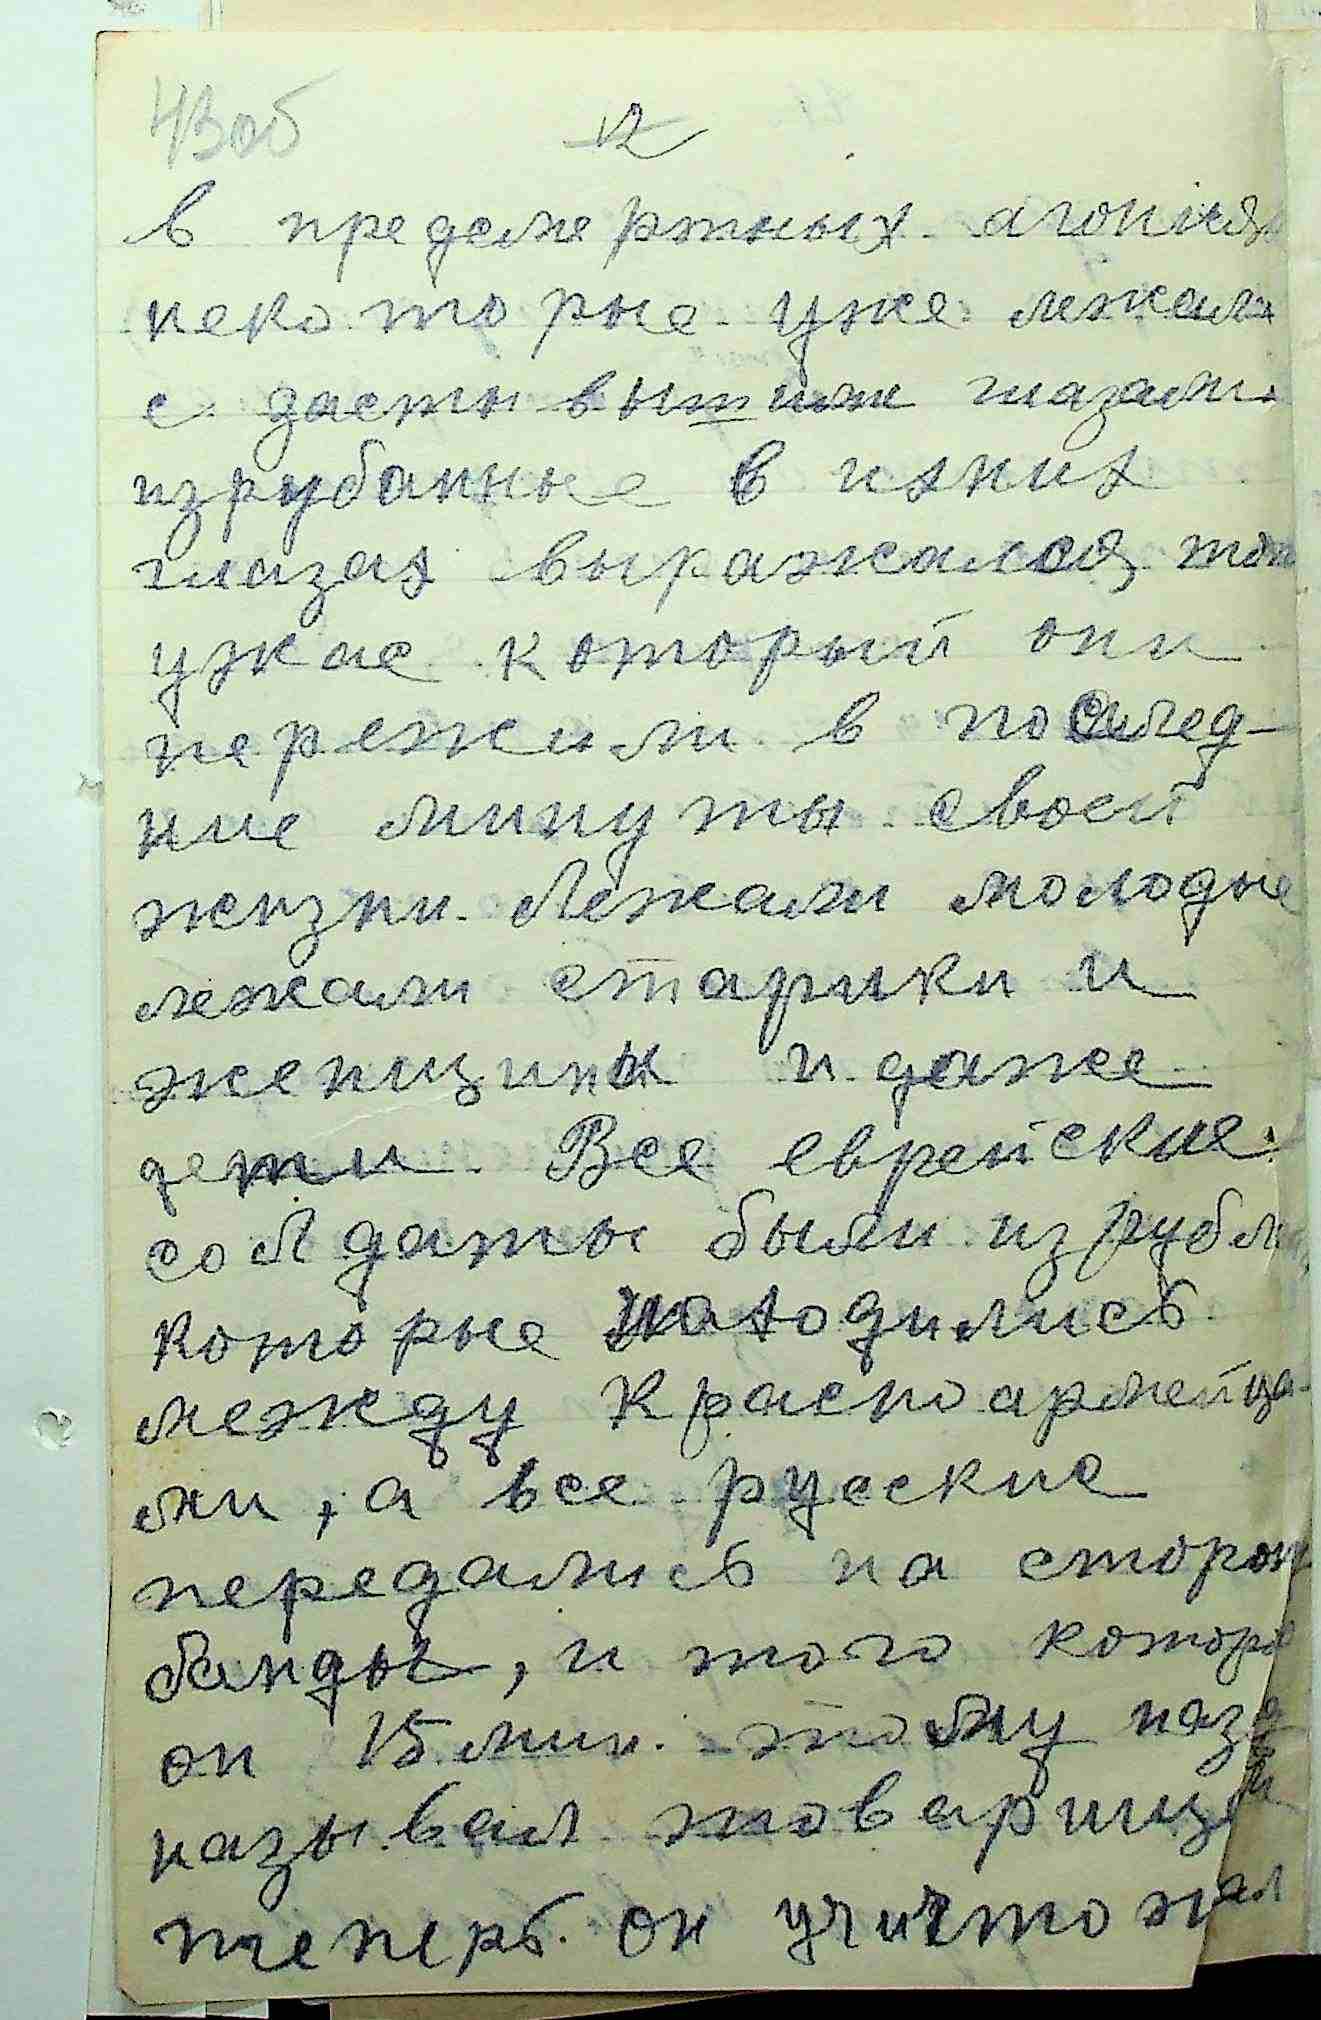 43об
12
в предсмертных агониях
некоторые уже лежали
с застывшими глазами
изрубанные в ихних
глазах выражался тот
ужас который они
пережили в послед-
ние минуты своей
жизни. Лежали молодые
лежали старики и
женщины и даже
дети. Все еврейские
солдаты были изрубл
которые находились
между красноармейца-
ми, а все русские
передались на сторон
банды, и того которо
он 15 мин. тому наза
называл товарищ
теперь он учичтожал